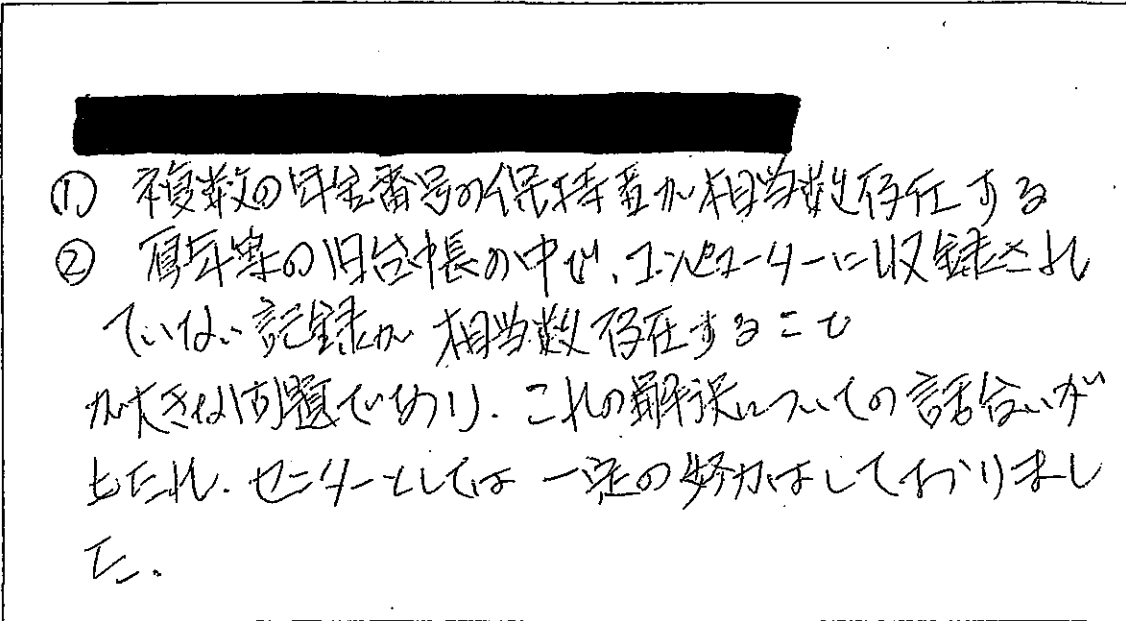 ① 複数の年金番号の保持者が相当数存在する
② 厚年等の旧台帳の中で、コンピューターに収録され
ていない記録が相当数存在すること
が大きな問題であり、これの解決についての話合いが
もたれ、センターとしては一定の努力はしておりまし
た。